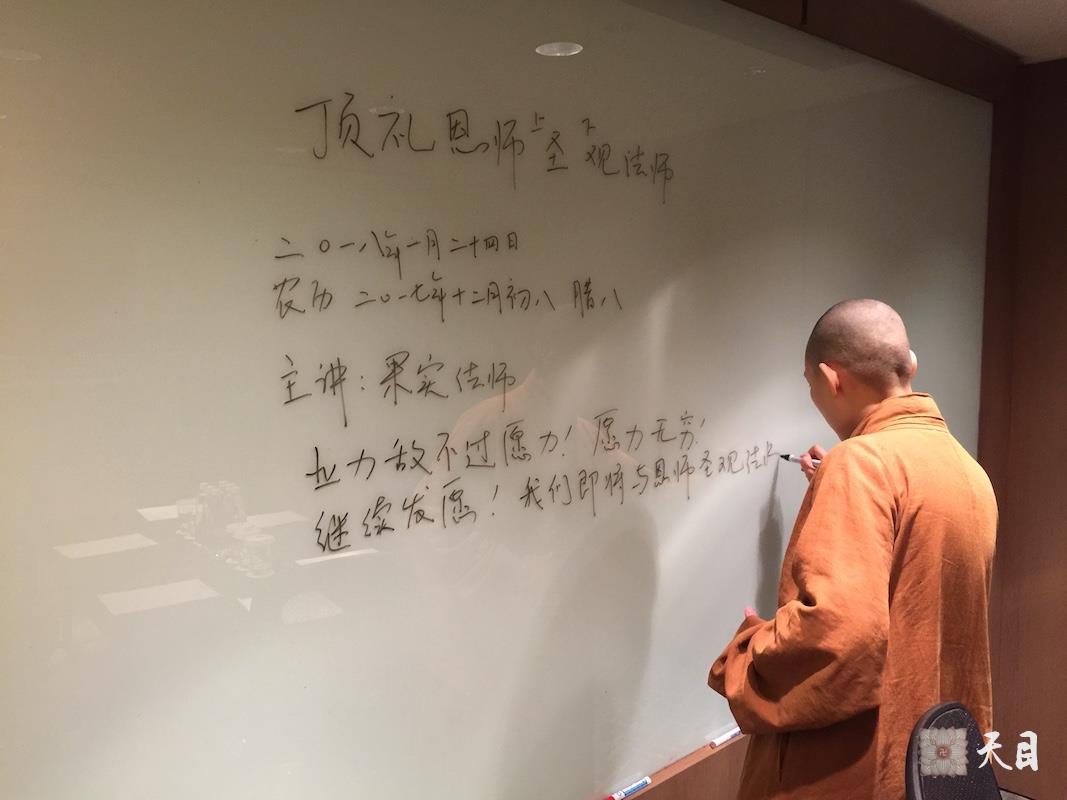 顶礼恩师上圣下观法师
二〇一八年一月二十四日
农历 二〇一七年十二月初八 腊八
主讲：果实法师
业力敌不过愿力！愿力无穷！
继续发愿！我们即将与恩师圣观法
天目